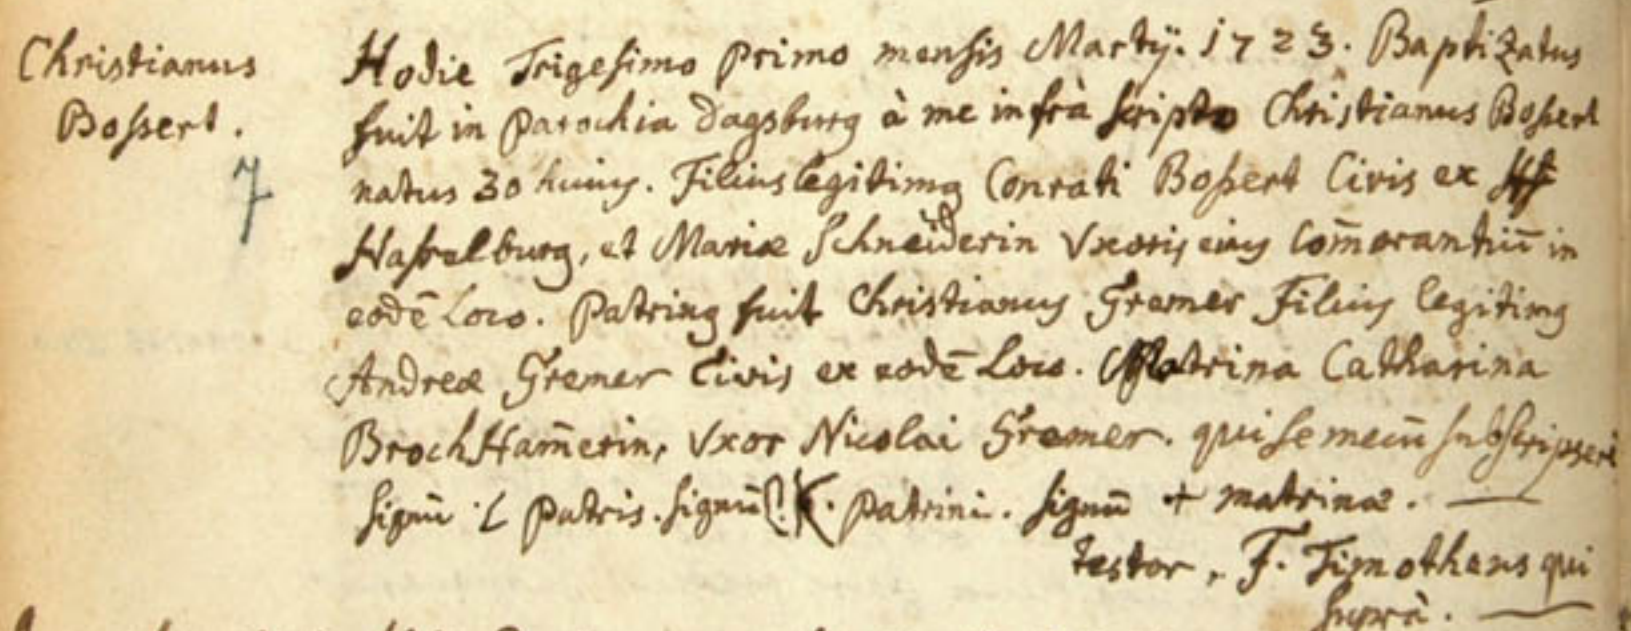 Christianus
Boßert.
7
Hodie Trigesimo Primo mensis Martÿ. 1723. Baptizatus
fuit in Parochia Dagsburg à me infrà scripto Christianus Boßert
natus 30 huius. Filius legitimus Conrati Boßert Civis ex
Haßelburg, et Mariæ Schneÿderin Vxoris eius Com̄orantiū in
eodē Loco. Patrinus fuit Christianus Gremer Filius legitimus
Andreæ Gremer Civis ex eodē Loco. Matrina Catharina
BrochHam̄erin, Vxor Nicolai Gremer. qui se mecū subscripseri
signū L Patris. signū K. Patrini. signū + matrinæ.
testor, F. Timotheus qui
suprà.